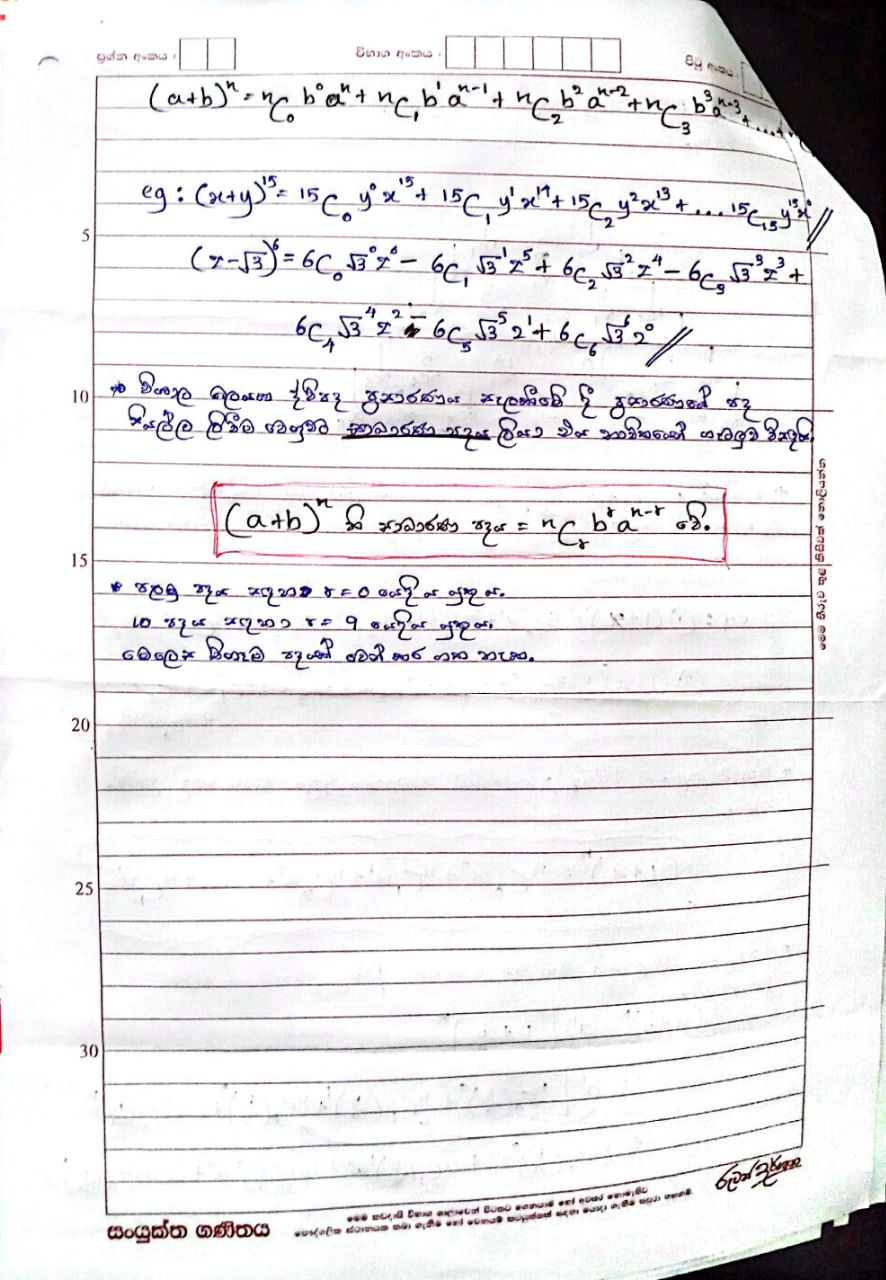 ප්‍රශ්න අංකය :
විභාග අංකය :
පිටු අංකය :
(a+b)ⁿ = nC₀ b⁰aⁿ + nC₁ b¹aⁿ⁻¹ + nC₂ b²aⁿ⁻² + nC₃ b³aⁿ⁻³ + ... +
eg : (x+y)¹⁵ = 15C₀ y⁰x¹⁵ + 15C₁ y¹x¹⁴ + 15C₂ y²x¹³ + ... 15C₁₅ y¹⁵x⁰ //
5
(z-√3)⁶ = 6C₀ √3⁰z⁶ - 6C₁ √3¹z⁵ + 6C₂ √3²z⁴ - 6C₃ √3³z³ +
6C₄ √3⁴z² - 6C₅ √3⁵2¹ + 6C₆ √3⁶2⁰ //
10
* විශාල ද්විපද ප්‍රසාරණය සැලකීමේ දී ප්‍රසාරණයේ පද
සියල්ල ලිවීම වෙනුවට සාධාරණ පදය ලියා එය භාවිතයෙන් ගැටලුව විසඳයි.
(a+b)ⁿ හි සාධාරණ පදය = nCᵣ bʳaⁿ⁻ʳ වේ.
15
* පලමු පදය සඳහා r = 0 යෙදිය යුතුය.
10 පදය සඳහා r = 9 යෙදිය යුතුය.
මෙලෙස ඕනෑම පදයක් වෙන් කර ගත හැක.
20
25
30
සංයුක්ත ගණිතය